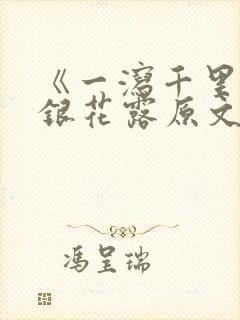 《一泻千里
银花露原文
冯呈瑞